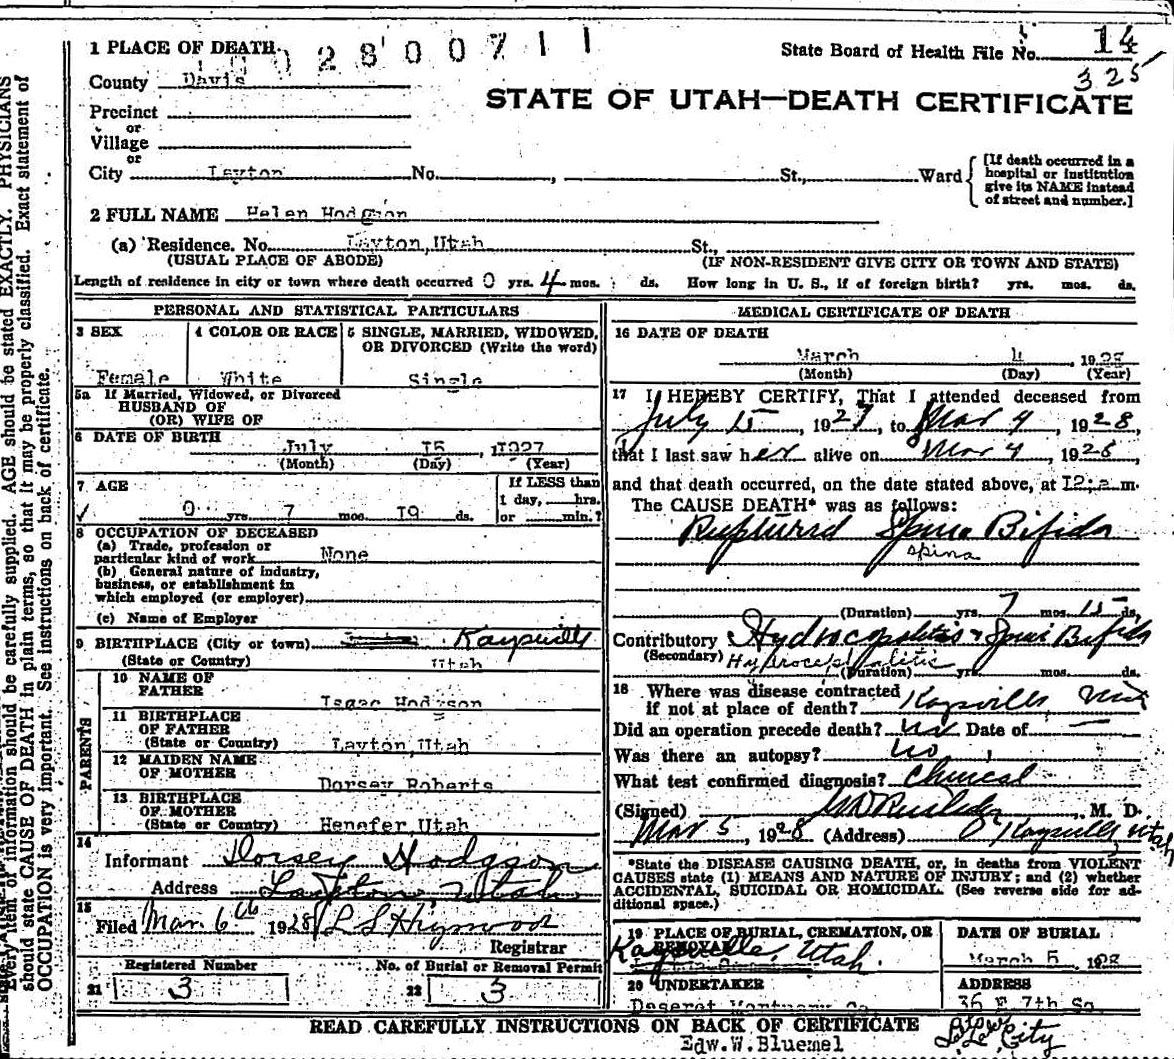 1 PLACE OF DEATH
0 2 8 0 0 7 1 1
State Board of Health File No. 14
325
County Davis
STATE OF UTAH—DEATH CERTIFICATE
Precinct
or
Village
or
City Layton No. , St., Ward
[If death occurred in a
hospital or institution
give its NAME instead
of street and number.]
2 FULL NAME Helen Hodgson
(a) Residence. No. Layton, Utah St.,
(USUAL PLACE OF ABODE) (IF NON-RESIDENT GIVE CITY OR TOWN AND STATE)
Length of residence in city or town where death occurred 0 yrs. 4 mos. ds. How long in U. S., if of foreign birth? yrs. mos. ds.
PERSONAL AND STATISTICAL PARTICULARS
3 SEX
Female
4 COLOR OR RACE
White
5 SINGLE, MARRIED, WIDOWED,
OR DIVORCED (Write the word)
Single
5a If Married, Widowed, or Divorced
HUSBAND OF
(OR) WIFE OF
6 DATE OF BIRTH
July 15, 1927
(Month) (Day) (Year)
7 AGE
0 yrs. 7 mos. 19 ds.
If LESS than
1 day, hrs.
or min.?
8 OCCUPATION OF DECEASED
(a) Trade, profession or
particular kind of work None
(b) General nature of industry,
business, or establishment in
which employed (or employer)
(c) Name of Employer
9 BIRTHPLACE (City or town) Kaysville
(State or Country) Utah
PARENTS
10 NAME OF
FATHER Isaac Hodgson
11 BIRTHPLACE
OF FATHER
(State or Country) Layton, Utah
12 MAIDEN NAME
OF MOTHER Dorsey Roberts
13 BIRTHPLACE
OF MOTHER
(State or Country) Henefer, Utah
14
Informant Dorsey Hodgson
Address Layton, Utah
15
Filed Mar. 6th 1928
Registrar
Registered Number
21 3
No. of Burial or Removal Permit
22 3
MEDICAL CERTIFICATE OF DEATH
16 DATE OF DEATH
March 4 1928
(Month) (Day) (Year)
17 I HEREBY CERTIFY, That I attended deceased from
July 15, 1927, to Mar 4, 1928,
that I last saw her alive on Mar 4, 1928,
and that death occurred, on the date stated above, at 12; a m.
The CAUSE DEATH* was as follows:
Ruptured Spina Bifida
Spina
(Duration) yrs. 7 mos. 15 ds.
Contributory Spina Bifida
(Secondary) Hydrocephalitic
(Duration) yrs. mos. ds.
18 Where was disease contracted
if not at place of death? Kaysville, Utah
Did an operation precede death? no Date of —
Was there an autopsy? no
What test confirmed diagnosis? Clinical
(Signed) M. D.
Mar 5, 1928 (Address) Kaysville Utah
*State the DISEASE CAUSING DEATH, or, in deaths from VIOLENT
CAUSES state (1) MEANS AND NATURE OF INJURY; and (2) whether
ACCIDENTAL, SUICIDAL OR HOMICIDAL. (See reverse side for ad-
ditional space.)
19 PLACE OF BURIAL, CREMATION, OR
REMOVAL
Kaysville, Utah.
DATE OF BURIAL
March 5 1928
20 UNDERTAKER
Deseret Mortuary Co.
ADDRESS
36 E 7th So.
City
READ CAREFULLY INSTRUCTIONS ON BACK OF CERTIFICATE
Edw.W.Bluemel
Every item of information should be carefully supplied. AGE should be stated EXACTLY. PHYSICIANS
should state CAUSE OF DEATH in plain terms, so that it may be properly classified. Exact statement of
OCCUPATION is very important. See instructions on back of certificate.